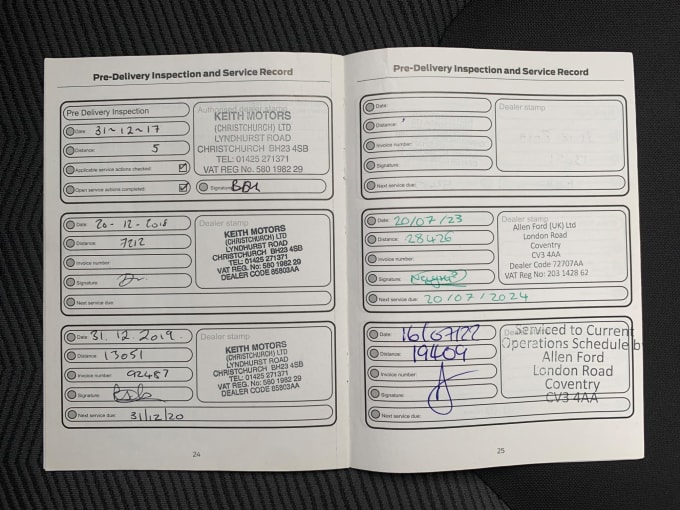 Pre-Delivery Inspection and Service Record
Pre Delivery Inspection
Date: 31-12-17
Distance: 5
Applicable service actions checked:
Open service actions completed:
Authorised dealer stamp
KEITH MOTORS
(CHRISTCHURCH) LTD
LYNDHURST ROAD
CHRISTCHURCH BH23 4SB
TEL: 01425 271371
VAT REG No: 580 1982 29
Signature:
Date: 20-12-2018
Distance: 7212
Invoice number:
Signature:
Next service due:
Dealer stamp
KEITH MOTORS
(CHRISTCHURCH) LTD
LYNDHURST ROAD
CHRISTCHURCH BH23 4SB
TEL: 01425 271371
VAT REG. No: 580 1982 29
DEALER CODE 65803AA
Date: 31.12.2019
Distance: 13051
Invoice number: 92487
Signature:
Next service due: 31/12/20
Dealer stamp
KEITH MOTORS
(CHRISTCHURCH) LTD
LYNDHURST ROAD
CHRISTCHURCH BH23 4SB
TEL: 01425 271371
VAT REG. No: 580 1982 29
DEALER CODE 65803AA
24
Pre-Delivery Inspection and Service Record
Date:
Distance:
Invoice number:
Signature:
Next service due:
Dealer stamp
Date: 20/07/23
Distance: 28426
Invoice number:
Signature:
Next service due: 20/07/2024
Dealer stamp
Allen Ford (UK) Ltd
London Road
Coventry
CV3 4AA
Dealer Code 72707AA
VAT Reg No: 203 1428 62
Date: 16/07/22
Distance: 19409
Invoice number:
Signature:
Next service due:
Serviced to Current
Operations Schedule b
Allen Ford
London Road
Coventry
CV3 4AA
25